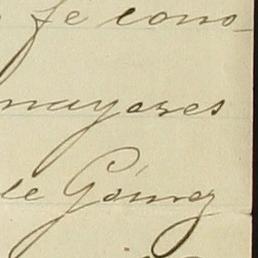 fe cono-
mayores
de Gómez